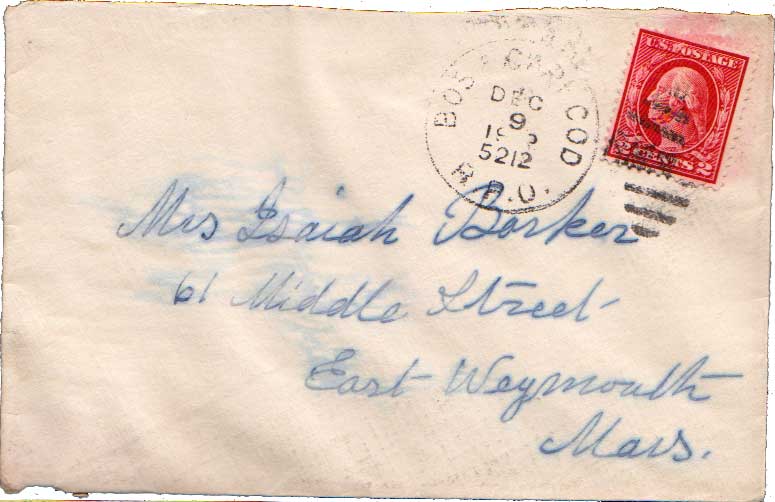 BOS. & CAPE COD
DEC
9
5212
R.P.O.
U.S. POSTAGE
2 CENTS 2
Mrs Isaiah Barker
61 Middle Street
East Weymouth
Mass.